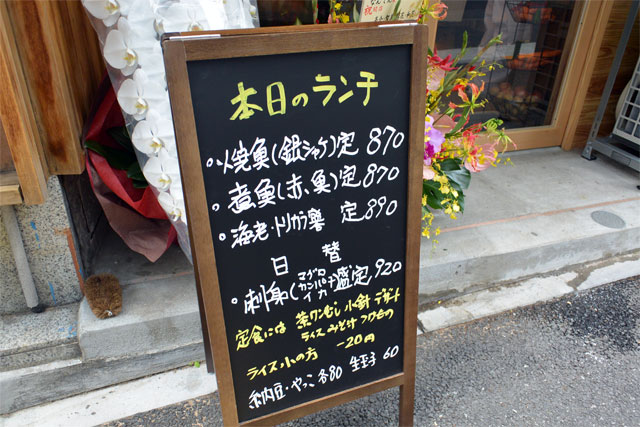 祝
本日のランチ
・焼魚(銀シャケ)定 870
・煮魚(赤魚)定 870
・海老・トリカラ 定 890
日替
・刺身(マグロ カンパチ イカ)盛定 920
定食には 茶ワンむし 小針 デザート
ライス みそ汁 つけもの
ライス小の方 -20円
納豆・やっこ各80 生玉子 60